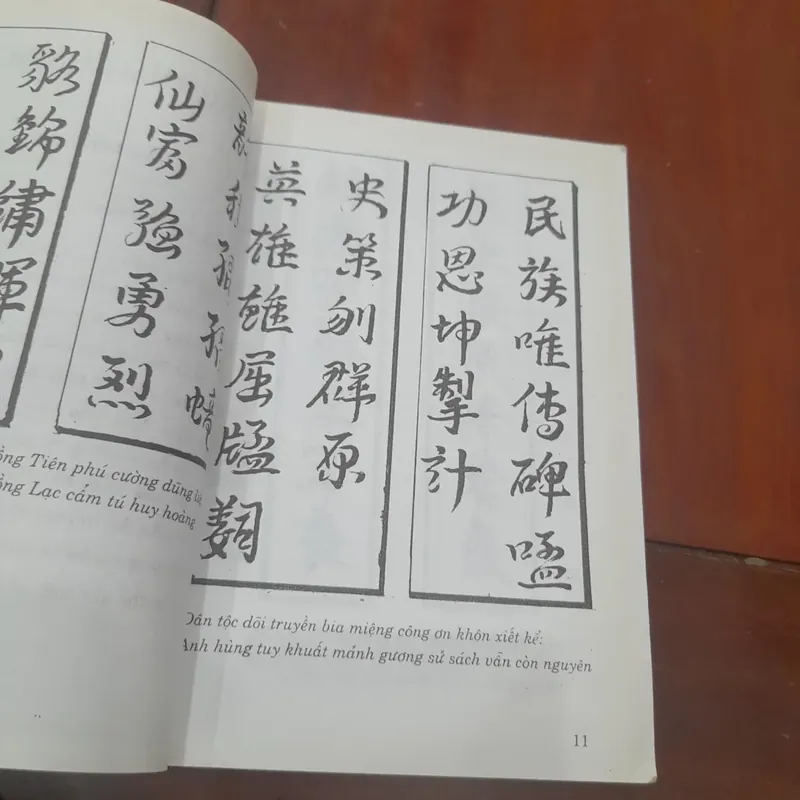 仙富強勇烈
貉錦繡
ồng Tiên phú cường dũng
ồng Lạc cẩm tú huy hoàng
民族唯傳碑
功恩坤掣計
史策刎群原
英雄雖屈
Dân tộc dõi truyền bia miệng công ơn khôn xiết kể:
Anh hùng tuy khuất mảnh gương sử sách vẫn còn nguyên
11